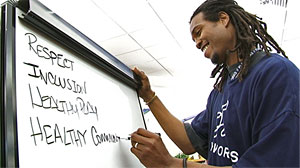 RESPECT
INCLUSION
HEALTHY PLAY
HEALTHY COMMUNIT